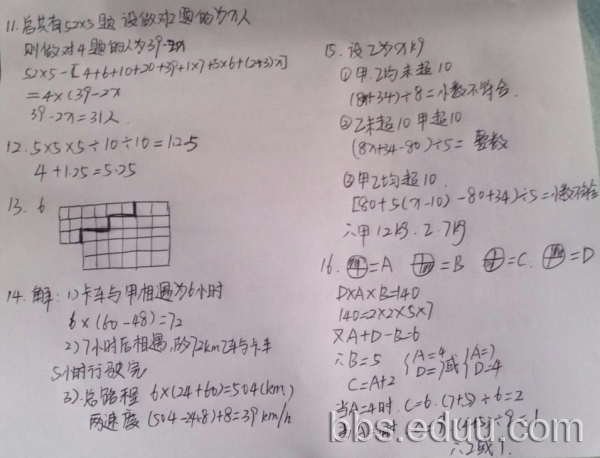 11. 总共有52×5题 设做对2题的为x人
则做对4题的人为39-2x
52×5-[4+6+10+20+39+1×7+5×6+(2+3)x]
=4×(39-2x
39-2x=31人
12. 5×5×5÷10÷10=1.25
4+1.25=5.25
13. 6
14. 解: 1)卡车与甲相遇为6小时
6×(60-48)=72
2)7小时后相遇,
72km乙车与卡车
5小时行驶完
3). 总路程 6×(24+60)=504(km)
两速度 (504-24×8)÷8=39km/h
15. 设乙为xkg
①甲.乙均未超10
(8x+34)÷8=小数不符合.
②乙未超10 甲超10
(8x+34-80)÷5= 整数
③甲乙均超10.
[80+5(x-10)-80+34]÷5=小数不符合
∴甲12kg. 乙.7kg
16. =A =B =C. =D
D×A×B=140
140=2×2×5×7
又A+D-B=6
∴B=5 {A=4 D=7 或 {A=7 D=4
C=A+2
当A=4时. C=6. (7+5)÷6=2
(4+5)÷9=1
∴2或1.
bbs.eduu.com